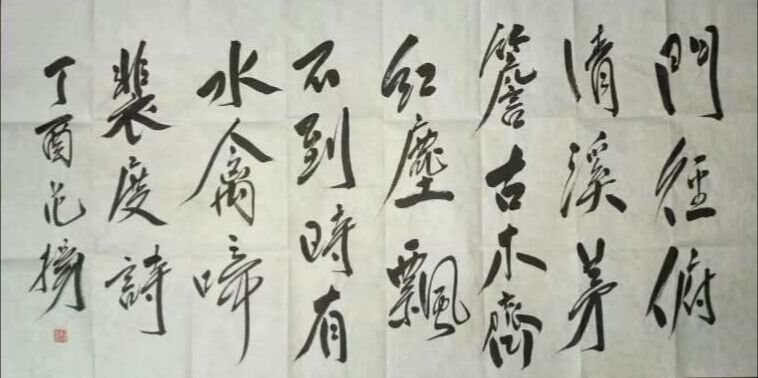 門徑俯
清溪茅
簷古木齊
紅塵飄
不到時有
水禽啼
裴度詩
丁酉范